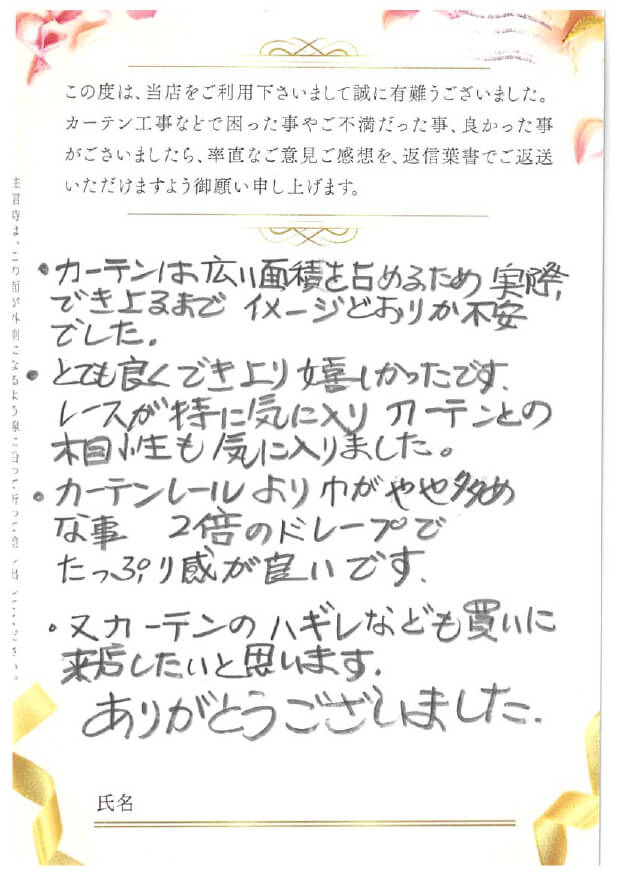 この度は、当店をご利用下さいまして誠に有難うございました。
カーテン工事などで困った事やご不満だった事、良かった事
がございましたら、率直なご意見ご感想を、返信葉書でご返送
いただけますよう御願い申し上げます。
・カーテンは広い面積を占めるため実際、
でき上るまで イメージどおりか不安
でした。
・とても良くでき上り嬉しかったです。
レースが特に気に入りカーテンとの
相性も気に入りました。
・カーテンレールより巾がやや多め
な事 2倍のドレープで
たっぷり感が良いです。
・又カーテンのハギレなども買いに
来店したいと思います。
ありがとうございました。
氏名